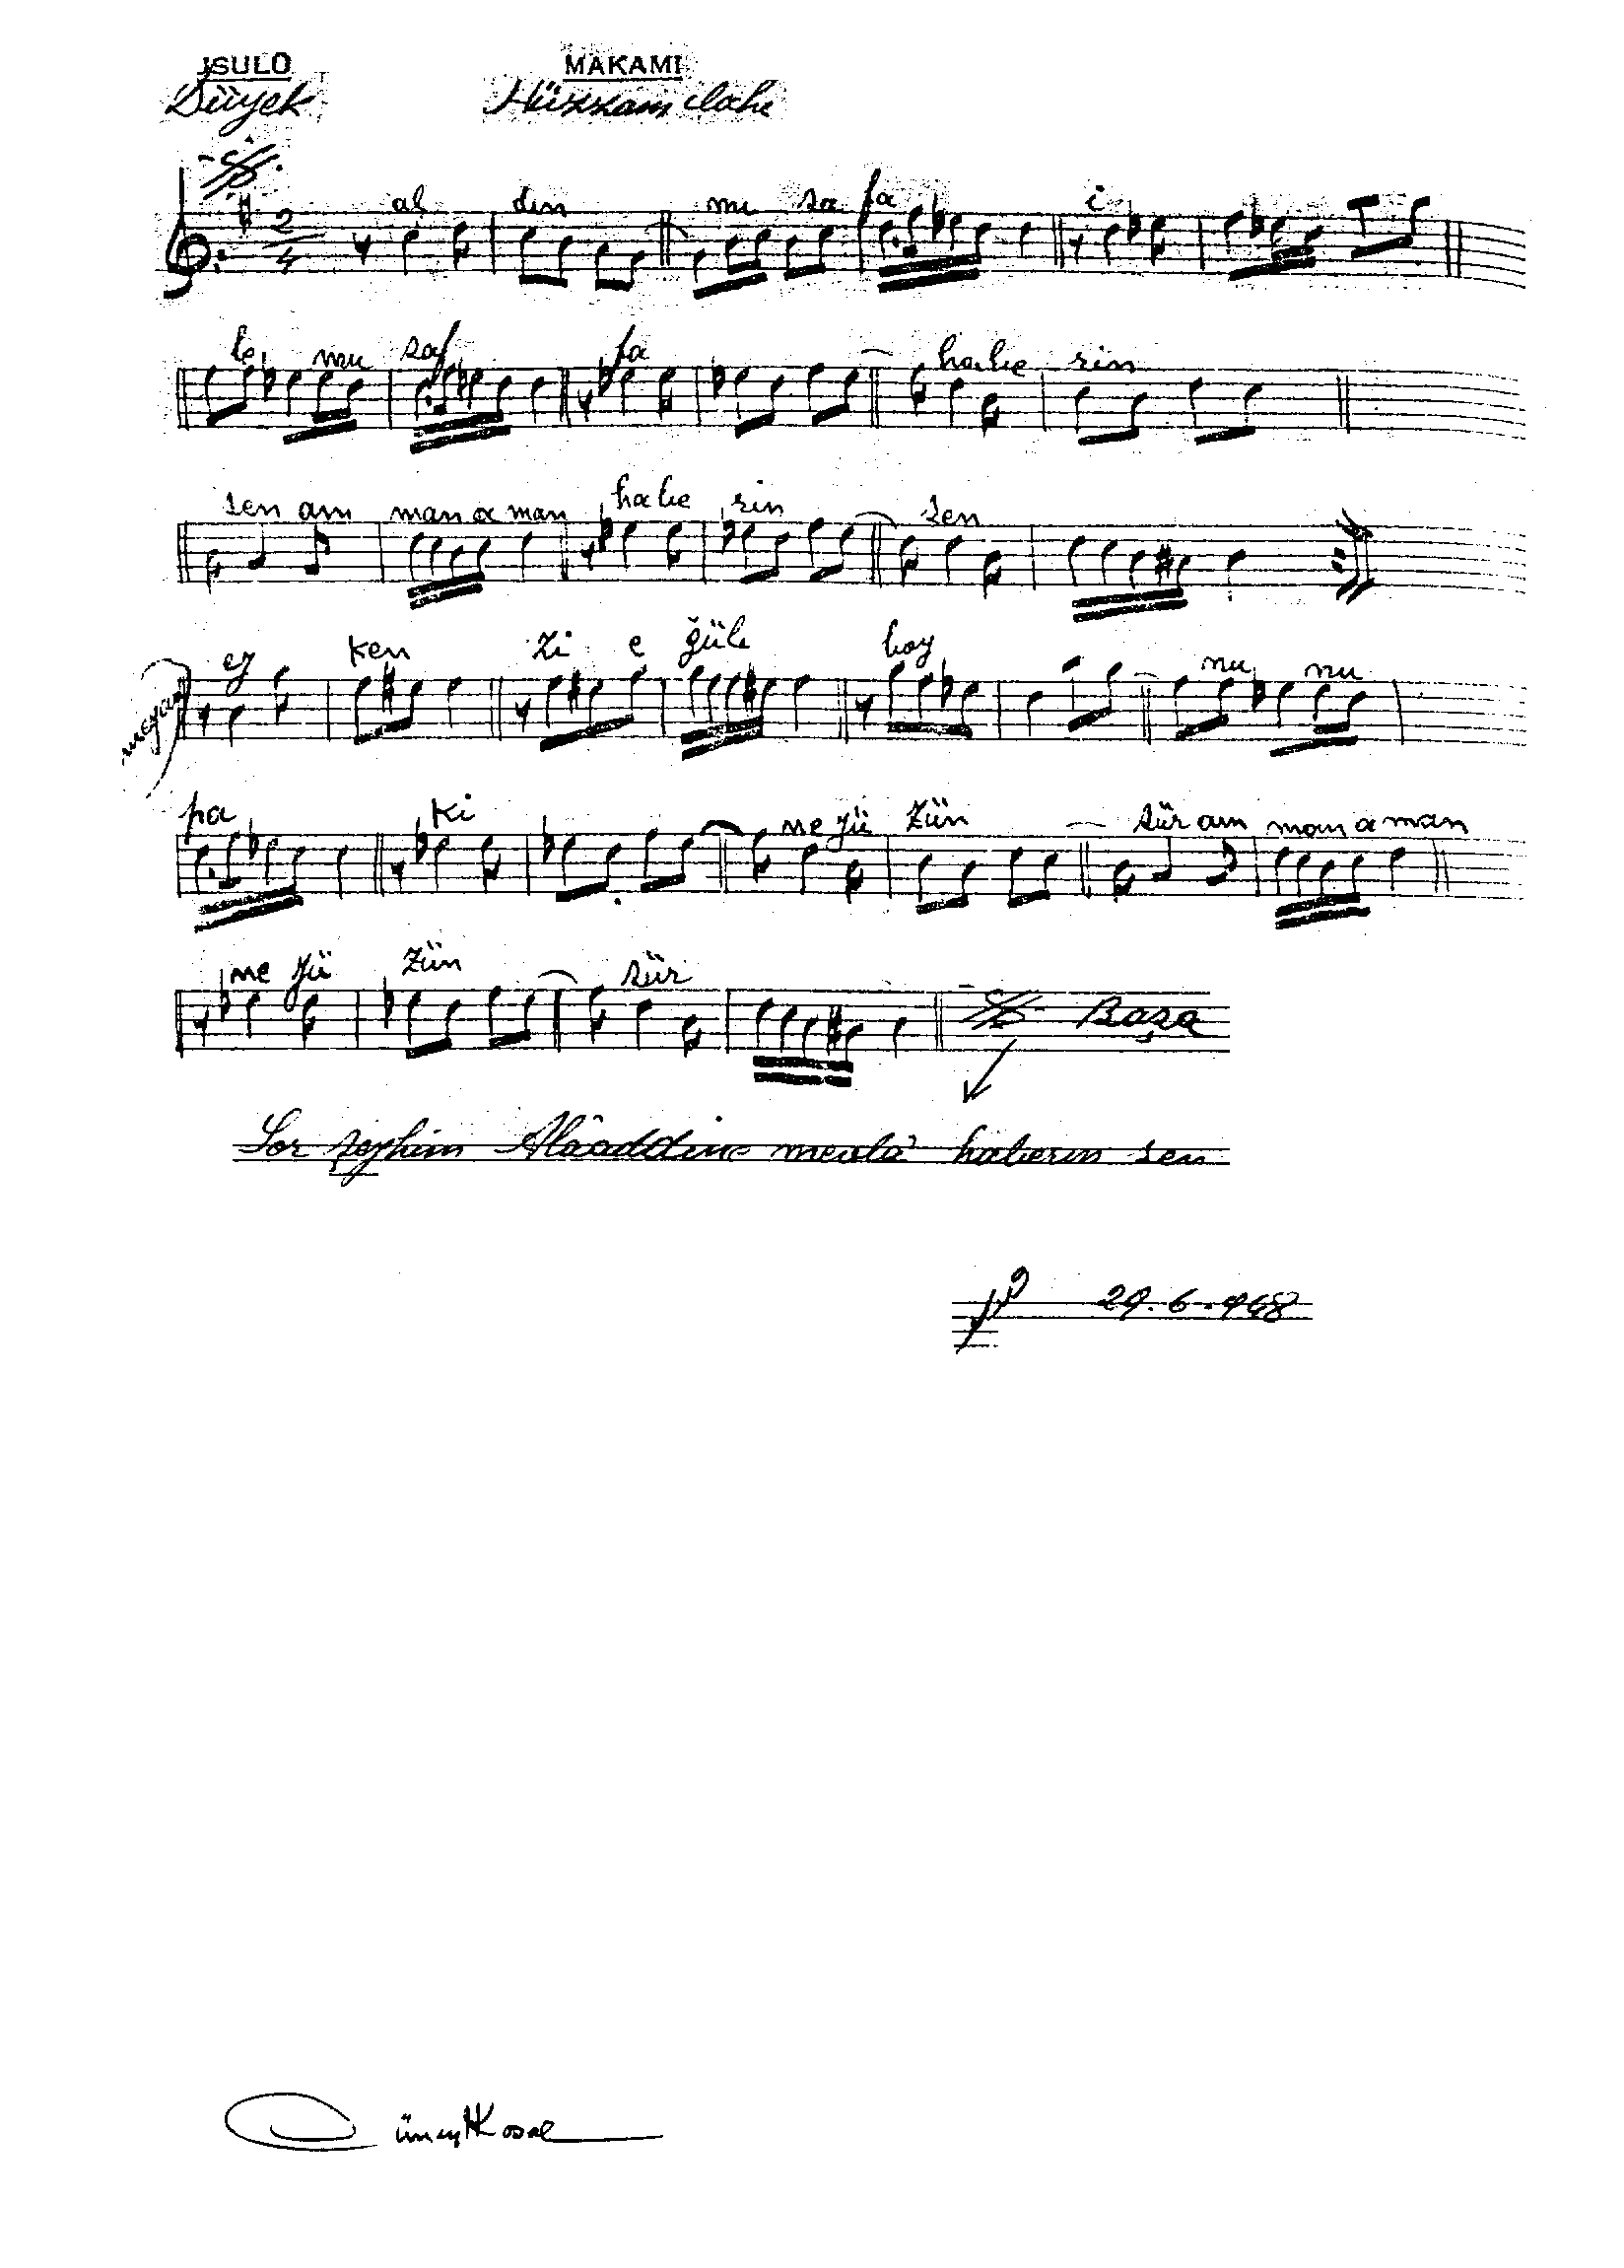 USULÜ MAKAMI
Düyek Hüzzam ilahi
2/4
al den mı sa fa i
le mu saf fa habe rin
sen am man a man habe rin sen
meyan ey ken zi e gül boy nu nu
pa ki ne yü zün sür am man a man
ne yü zün sür Başa
Sor şeyhim Alâaddine menlâ haberin sen
29.6.968
Cüneyt Kosal